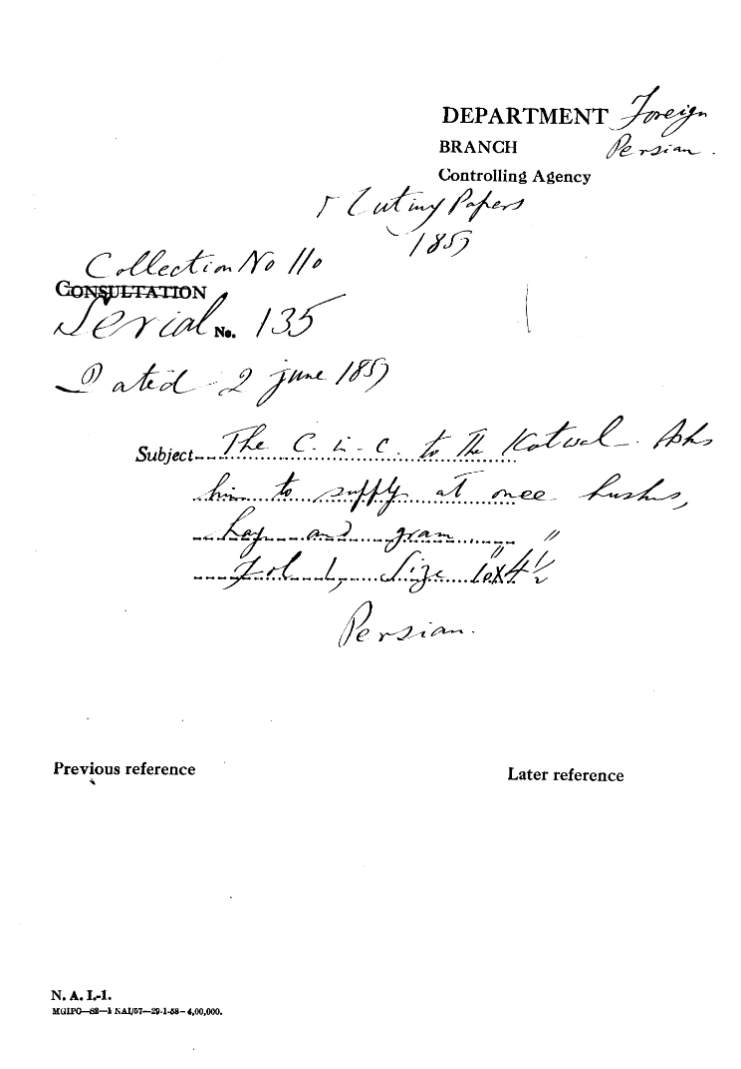 DEPARTMENT Foreign
BRANCH Persian.
Controlling Agency
Mutiny Papers
1857
Collection No 110
CONSULTATION
Serial No. 135
Dated 2 june 1857
Subject The C. in. C. to The Kotwal. Asks
him to supply at once husks,
hay and gram
Fol 1, Size 10"x4½"
Persian.
Previous reference
Later reference
N. A. I.-1.
MGIPC—S2—1 NAI/57—29-1-58—4,00,000.